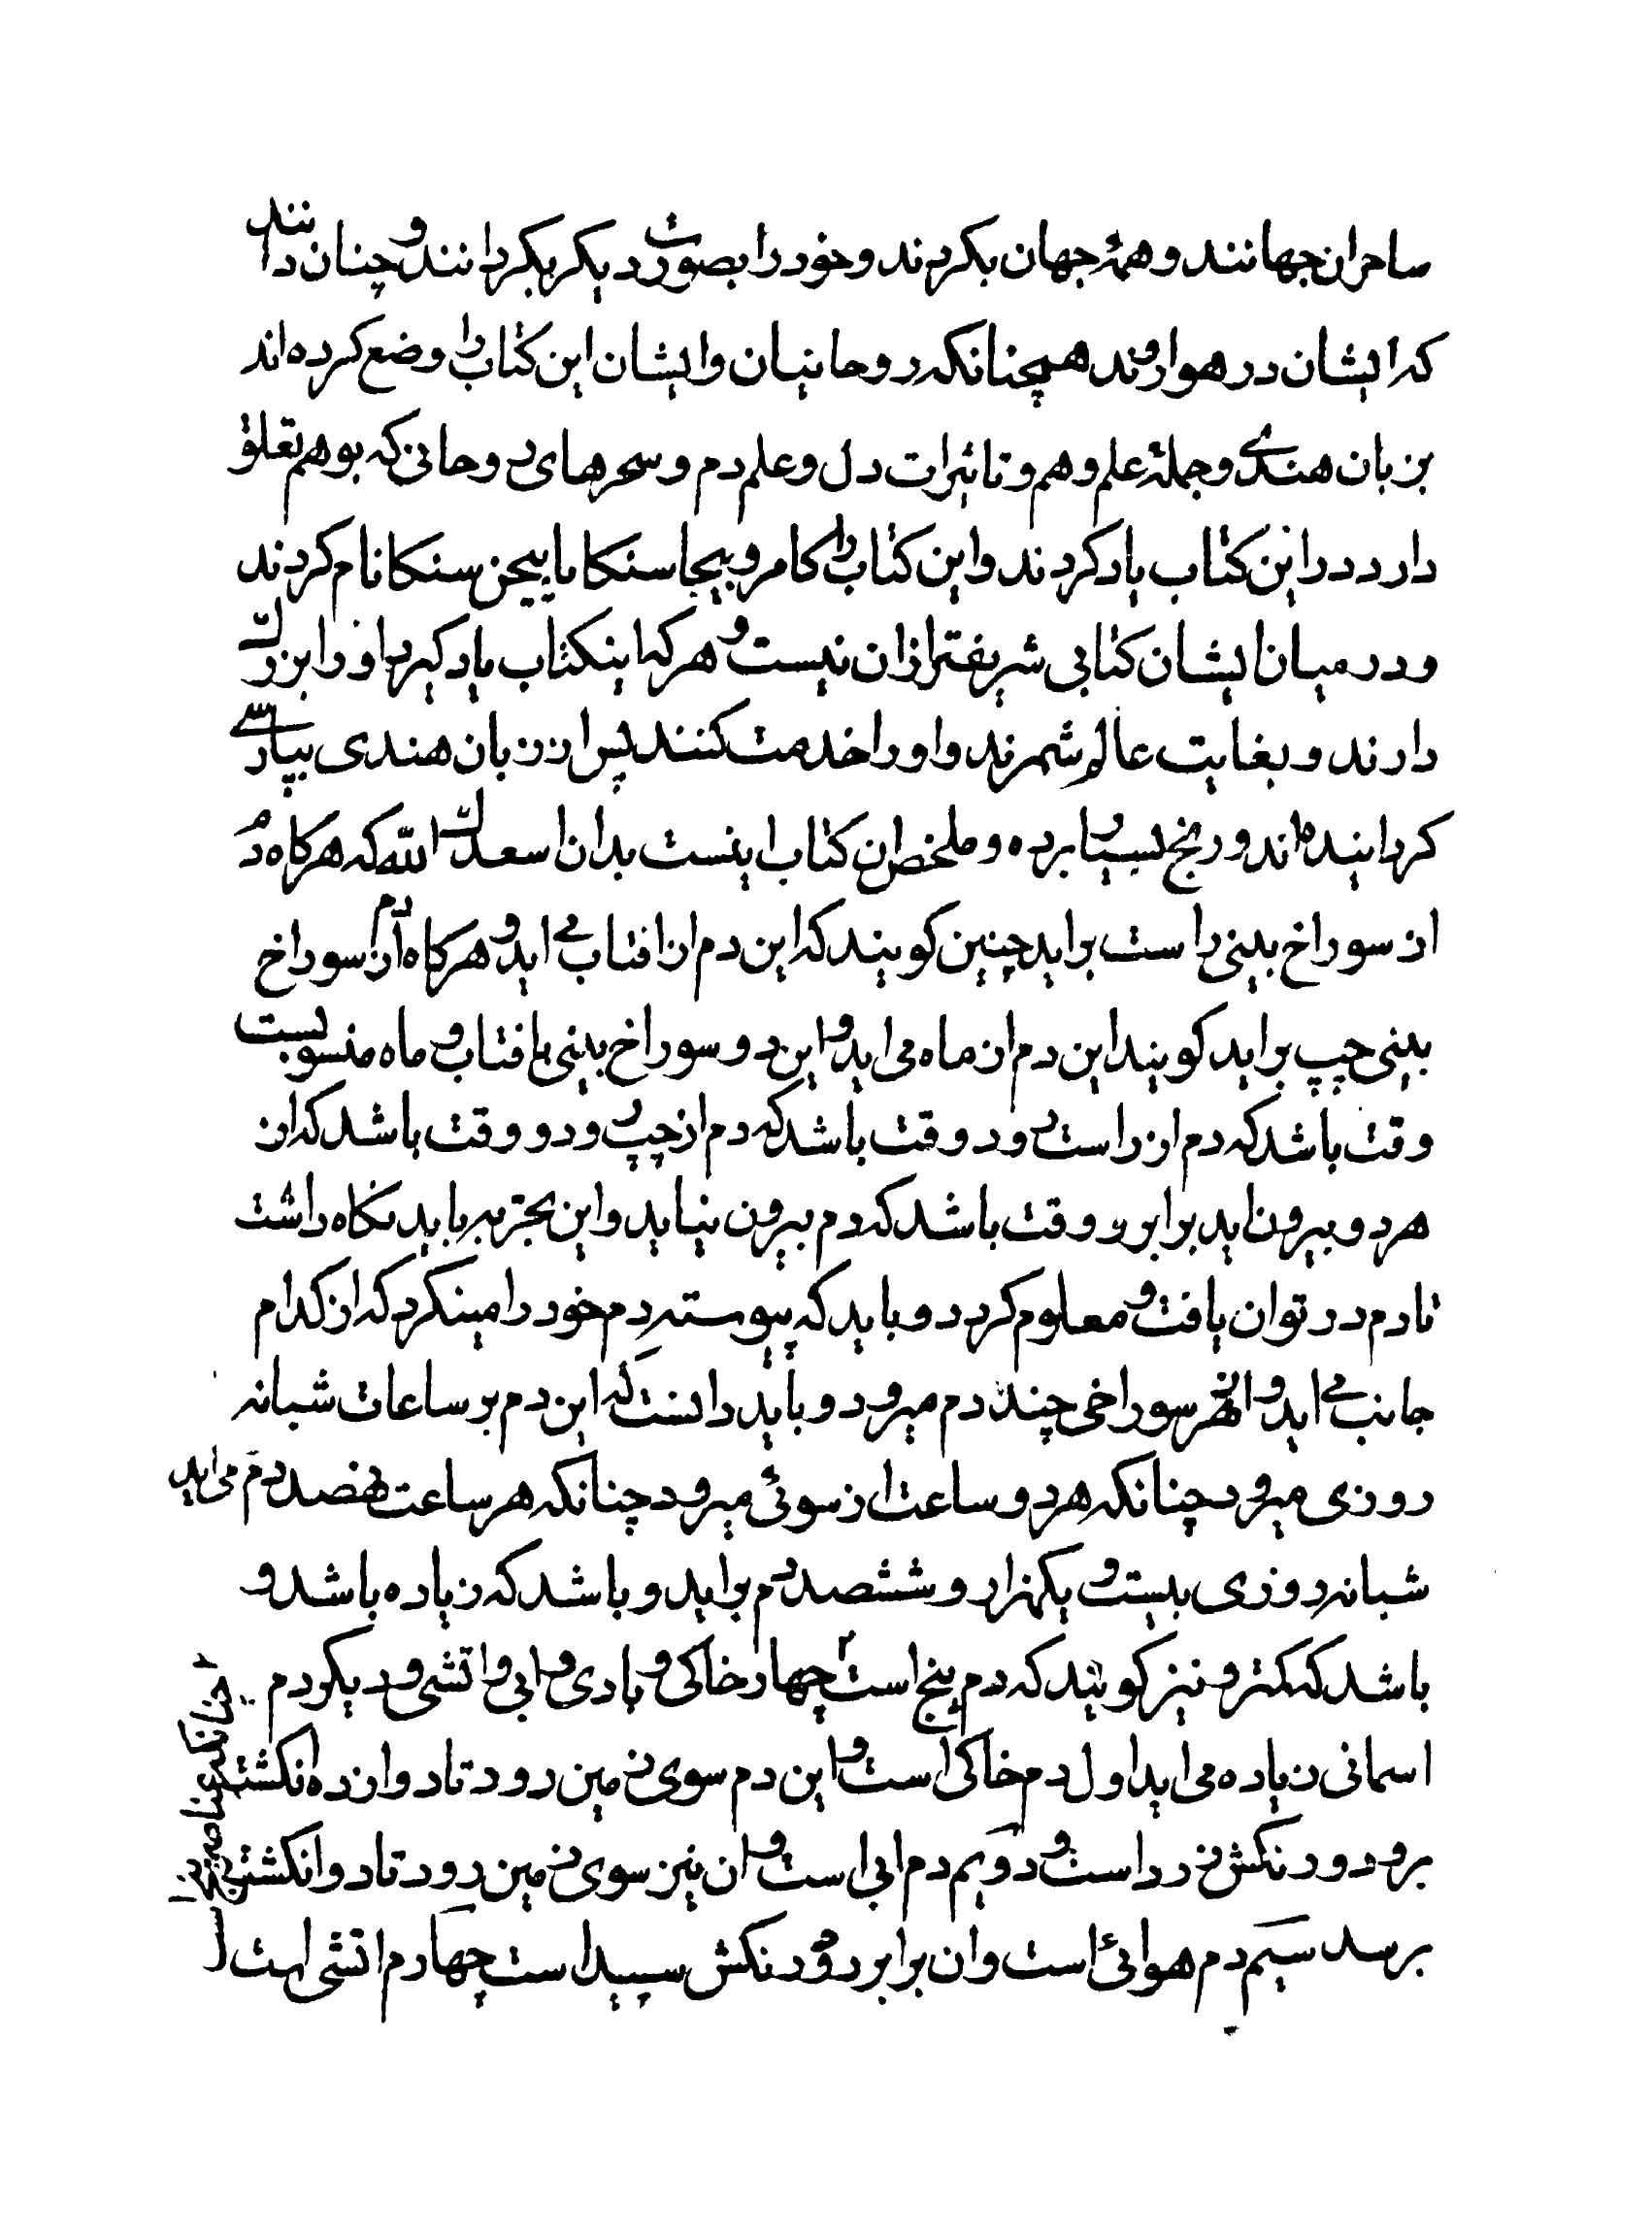 ساحران جهانند و همهٔ جهان بکردند و خود را بصورت دیکر بکردانند و چنان دانند
که ایشان در هوا روند همچنانکه روحانیان و ایشان این کتاب را وضع کرده اند
بزبان هندی و جملهٔ علم وهم و تاثیرات دل و علم دم و سحرهای روحانی که بوهم تعلق
دارد در این کتاب یاد کردند و این کتاب را کامرو بیجا سنکا یا بیجن سنکا نام کردند
و در میان ایشان کتابی شریفتر ازان نیست و هر که اینکتاب یاد کیرد او را بزرک
دارند و بغایت عالم شمرند و او را خدمت کنند پس از زبان هندی بپارسی
کردانیده اند و رنج بسیار برده و ملخص ان کتاب اینست بدان اسعدک الله که هرکاه دم
از سوراخ بینی راست براید چنین کویند که این دم از افتاب می اید و هرکاه دم از سوراخ
بینی چپ براید کویند این دم از ماه می اید و این دو سوراخ بینی با فتاب و ماه منسوبست
وقت باشد که دم از راست رود و وقت باشد که دم از چپ رود و وقت باشد که از
هر دو بیرون اید برابر و وقت باشد که دم بیرون نیاید و این تجربه باید نکاه داشت
تا دم در توان یافت و معلوم کرد و باید که پیوسته دم خود را مینکرد که از کدام
جانب می اید و از هر سوراخی چند دم میرود و باید دانست که این دم بر ساعات شبانه
روزی میرود چنانکه هر دو ساعت از سوئی میرود چنانکه هر ساعت نهصد دم می اید
شبانه روزی بیست و یکهزار و ششصد دم براید و باشد که زیاده باشد و
باشد که کمتر و نیز کویند که دم پنج است چهار خاکی و بادی و ابی و اتشی و دیکر دم
اسمانی زیاده می اید اول دم خاکی است و این دم سوی زمین رود تا دوازده انکشت
برود و رنکش زرد است و دویم دم ابی است و ان نیز سوی زمین رود تا دو انکشت
برسد سیم دم هوائی است و ان برابر رود و رنکش سپید است چهارم دم اتشی است